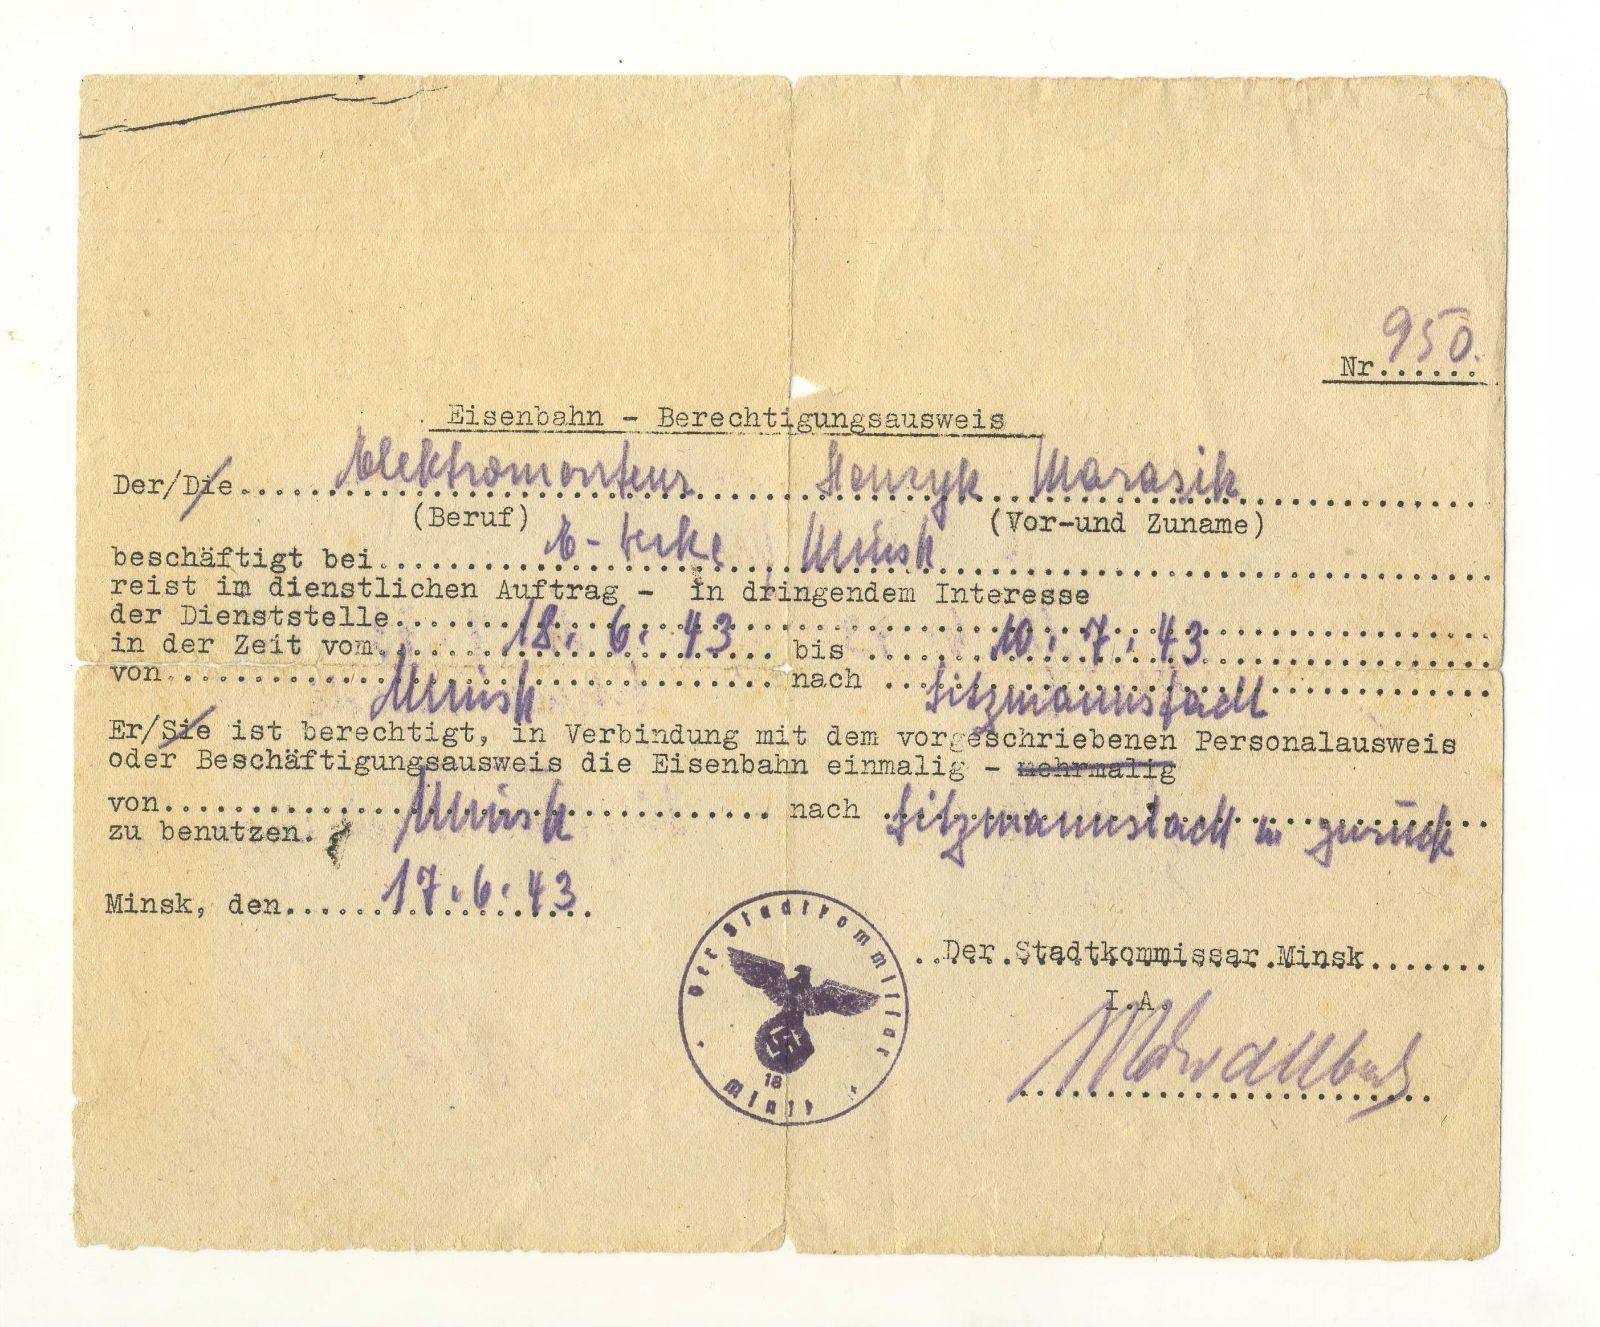 Nr. 950.
Eisenbahn - Berechtigungsausweis
Der/Die Elektromonteur Henryk Marasik
(Beruf) (Vor-und Zuname)
beschäftigt bei E-Werke Minsk
reist im dienstlichen Auftrag - in dringendem Interesse
der Dienststelle
in der Zeit vom 18.6.43 bis 10.7.43
von Minsk nach Litzmannstadt
Er/Sie ist berechtigt, in Verbindung mit dem vorgeschriebenen Personalausweis
oder Beschäftigungsausweis die Eisenbahn einmalig - mehrmalig
von Minsk nach Litzmannstadt u zurück
zu benutzen.
Minsk, den 17.6.43
Der Stadtkommissar Minsk
I.A.
Der Stadtkommissar
18
Minsk